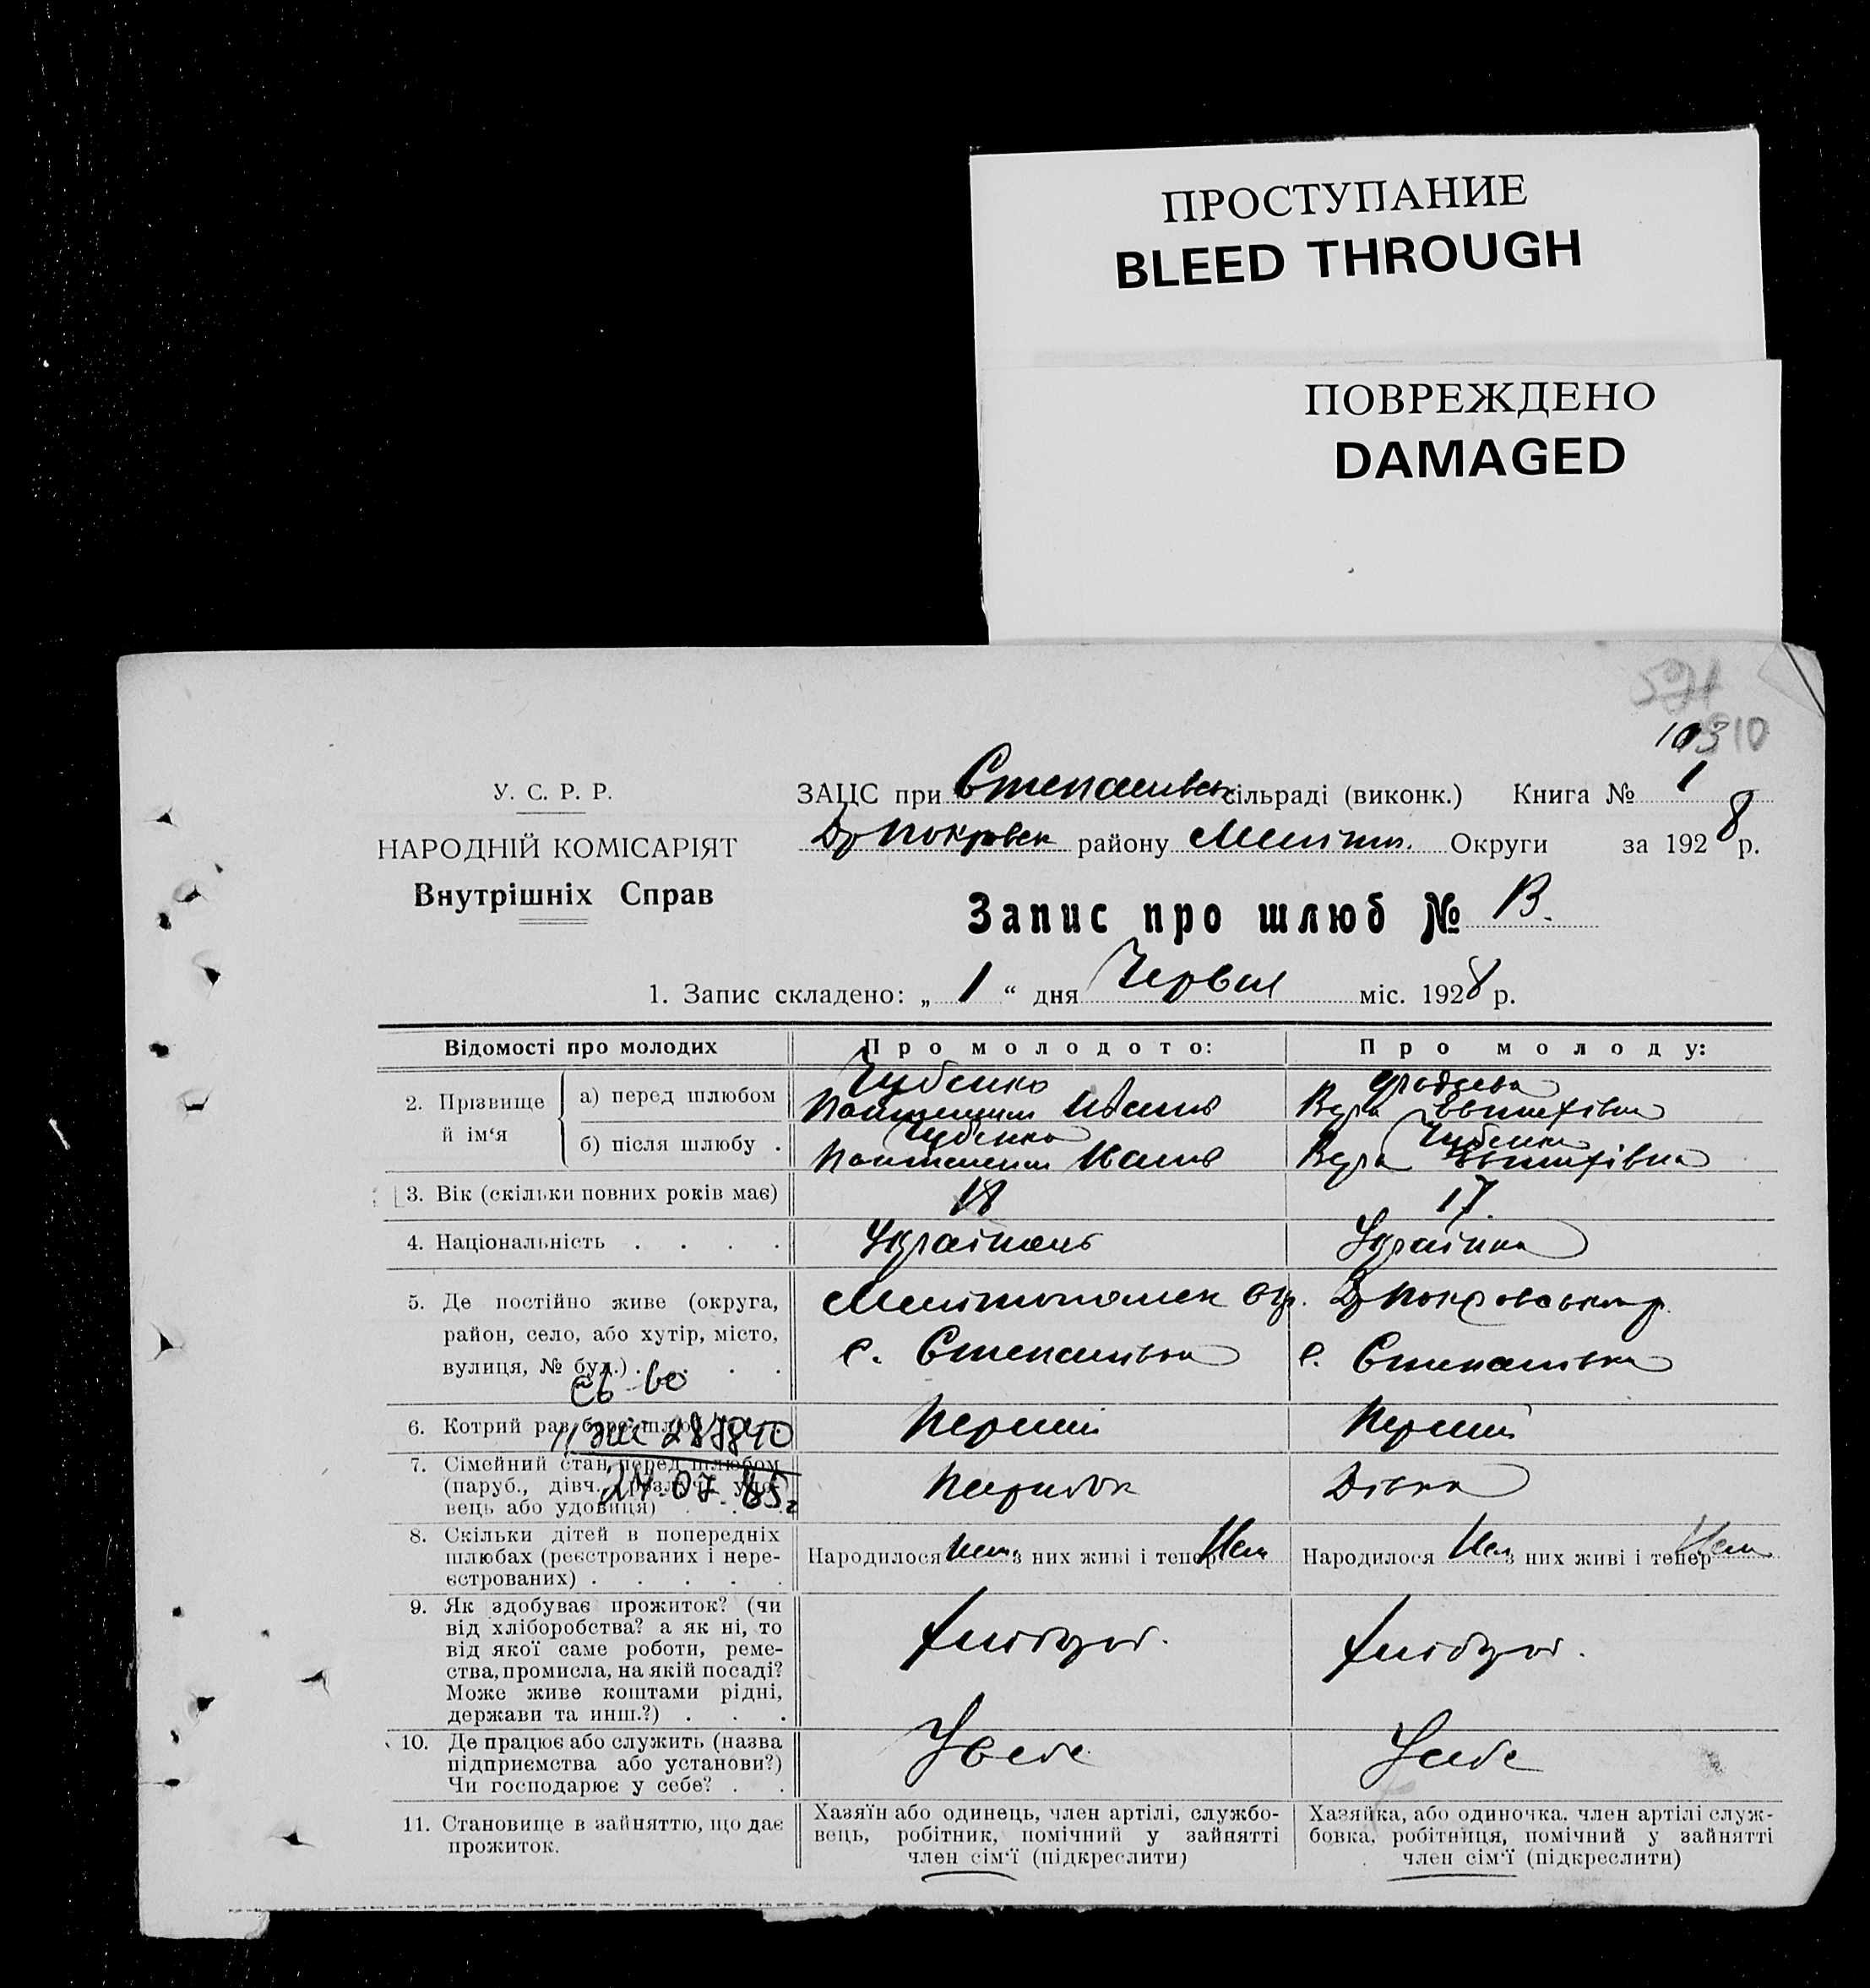 ПРОСТУПАНИЕ
BLEED THROUGH
ПОВРЕЖДЕНО
DAMAGED
591
103 310
У. С. Р. Р.
НАРОДНІЙ КОМІСАРІЯТ
Внутрішніх Справ
ЗАЦС при Степанівськ сільраді (виконк.) Книга № 1
Др Покровськ району Меліт. Округи за 1928 р.
Запис про шлюб № 13.
1. Запис складено: „ 1 “ дня Червня міс. 1928 р.
Відомості про молодих
Про молодого:
Про молоду:
2. Прізвище й ім‘я
а) перед шлюбом
Чубенко
Иванів
Вера
б) після шлюбу .
Чубенко
Иванів
Чубенко
Вера
3. Вік (скільки повних років має)
18
17.
4. Національність . . . .
Українець
Українка
5. Де постійно живе (округа,
район, село, або хутір, місто,
вулиця, № буд.) . . . .
Мелітопольськ окр. Др Покровського р.
с. Степанівка
с. Степанівка
св-во
6. Котрий раз бере шлюб
II 287840
Перший
Перший
7. Сімейний стан перед шлюбом
(паруб., дівч., розлуч., удо-
вець або удовиця) . . .
24.07.85г
Парубок
Дівка
8. Скільки дітей в попередніх
шлюбах (реєстрованих і нере-
єстрованих) . . . . .
Народилося Нет з них живі і тепер Нет
Народилося Нет з них живі і тепер Нет
9. Як здобуває прожиток? (чи
від хліборобства? а як ні, то
від якої саме роботи, реме-
ства, промисла, на якій посаді?
Може живе коштами рідні,
держави та инш.?) . . .
хлібороб.
хлібороб.
10. Де працює або служить (назва
підприємства або установи?)
Чи господарює у себе? . .
У себе
У себе
11. Становище в зайняттю, що дає
прожиток.
Хазяїн або одинець, член артілі, службо-
вець, робітник, помічний у зайнятті
член сім‘ї (підкреслити)
Хазяйка, або одиночка, член артілі служ-
бовка, робітниця, помічний у зайнятті
член сім‘ї (підкреслити)